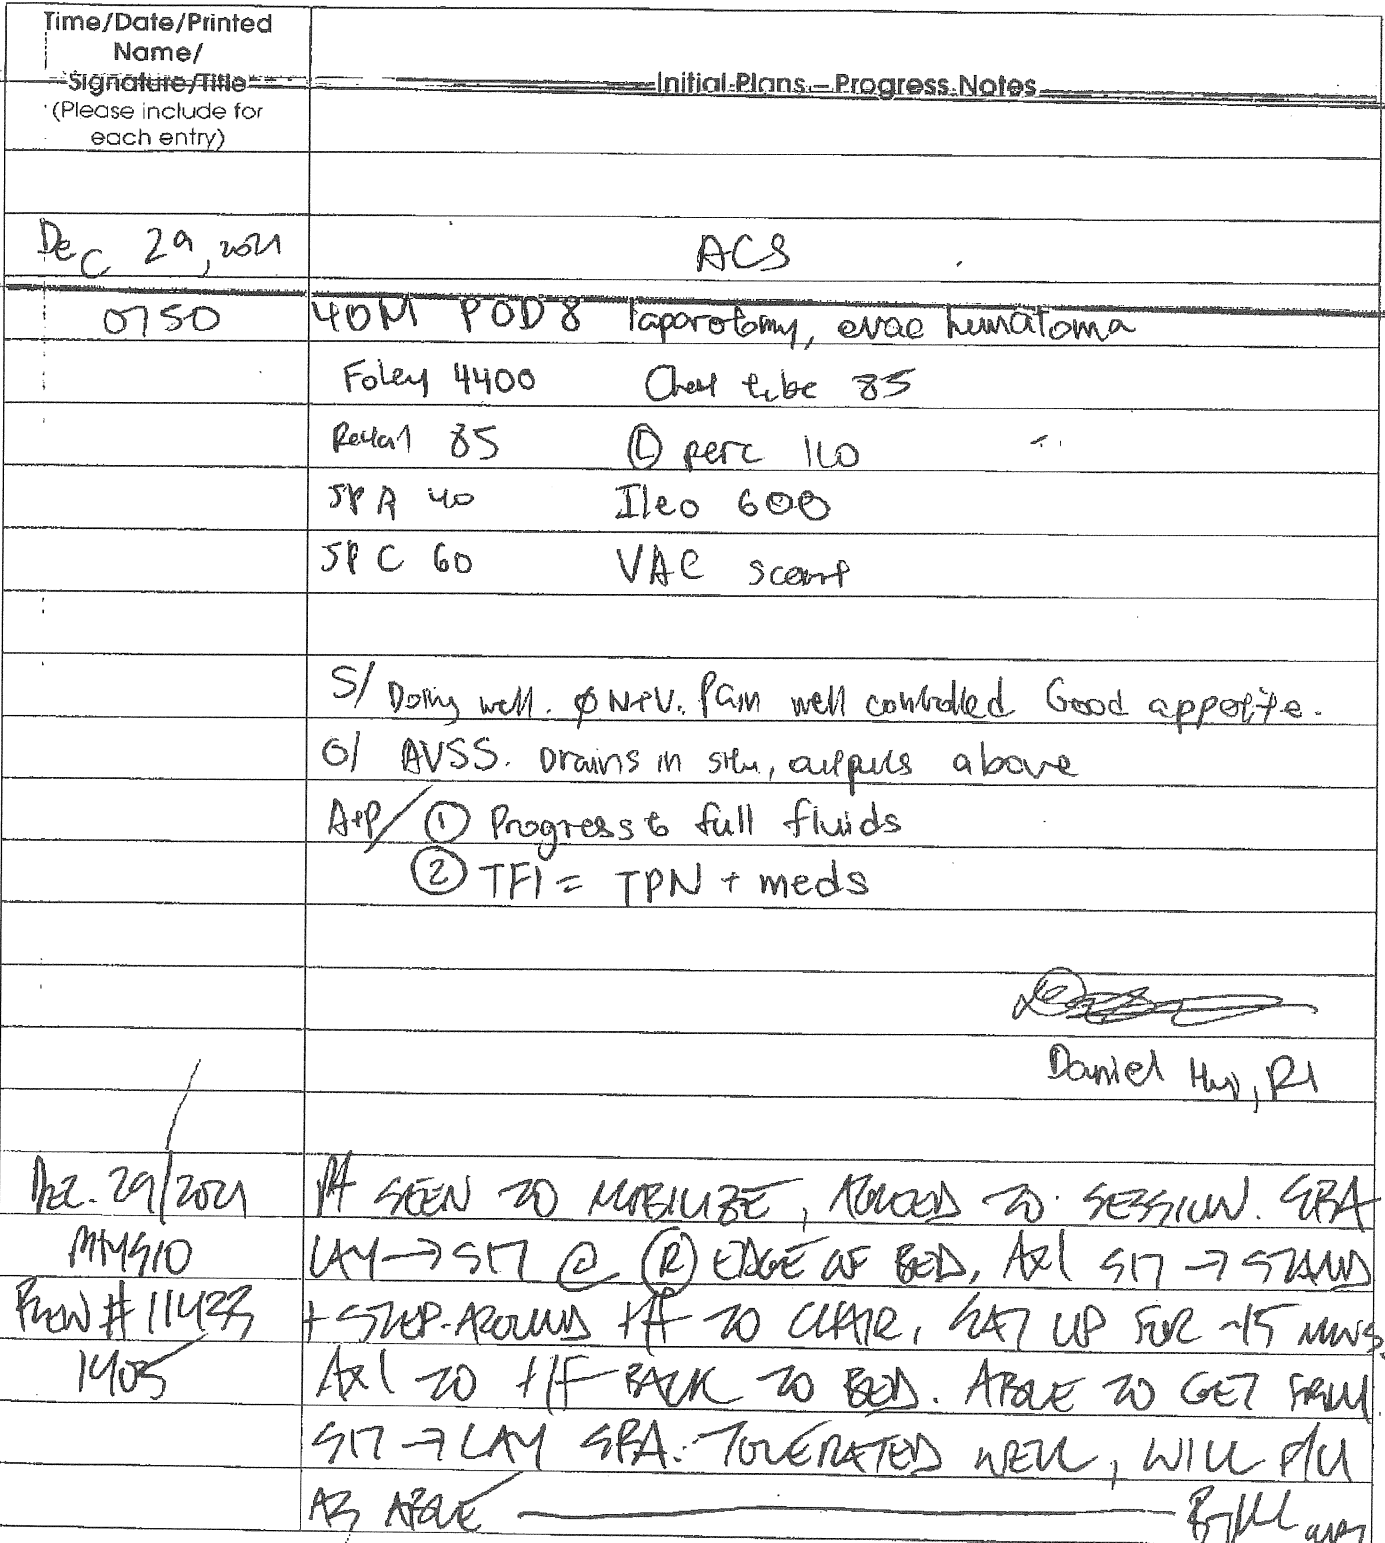 Time/Date/Printed
Name/
Signature/Title
(Please include for
each entry)
Initial Plans – Progress Notes
Dec 29, 2021
ACS
0750
40M POD8 laparotomy, evac hematoma
Foley 4400 Chest tube 85
Rectal 85 Ⓛ perc 110
JP A 40 Ileo 600
JP C 60 VAC scant
S/ Doing well. ∅ N+V. Pain well controlled Good appetite.
O/ AVSS. Drains in situ, outputs above
A+P/ ① Progress to full fluids
② TFI = TPN + meds
Daniel
Dec. 29/2021
PT SEEN TO MOBILIZE, AGREED TO SESSION. SBA
PHYSIO
LAY → SIT @ Ⓡ EDGE OF BED, Ax1 SIT → STAND
# 11433
+ STEP-AROUND T/F TO CHAIR, SAT UP FOR ~15 MINS.
1405
Ax1 TO T/F BACK TO BED. ABLE TO GET FROM
SIT → LAY SBA. TOLERATED WELL, WILL F/U
AS ABLE